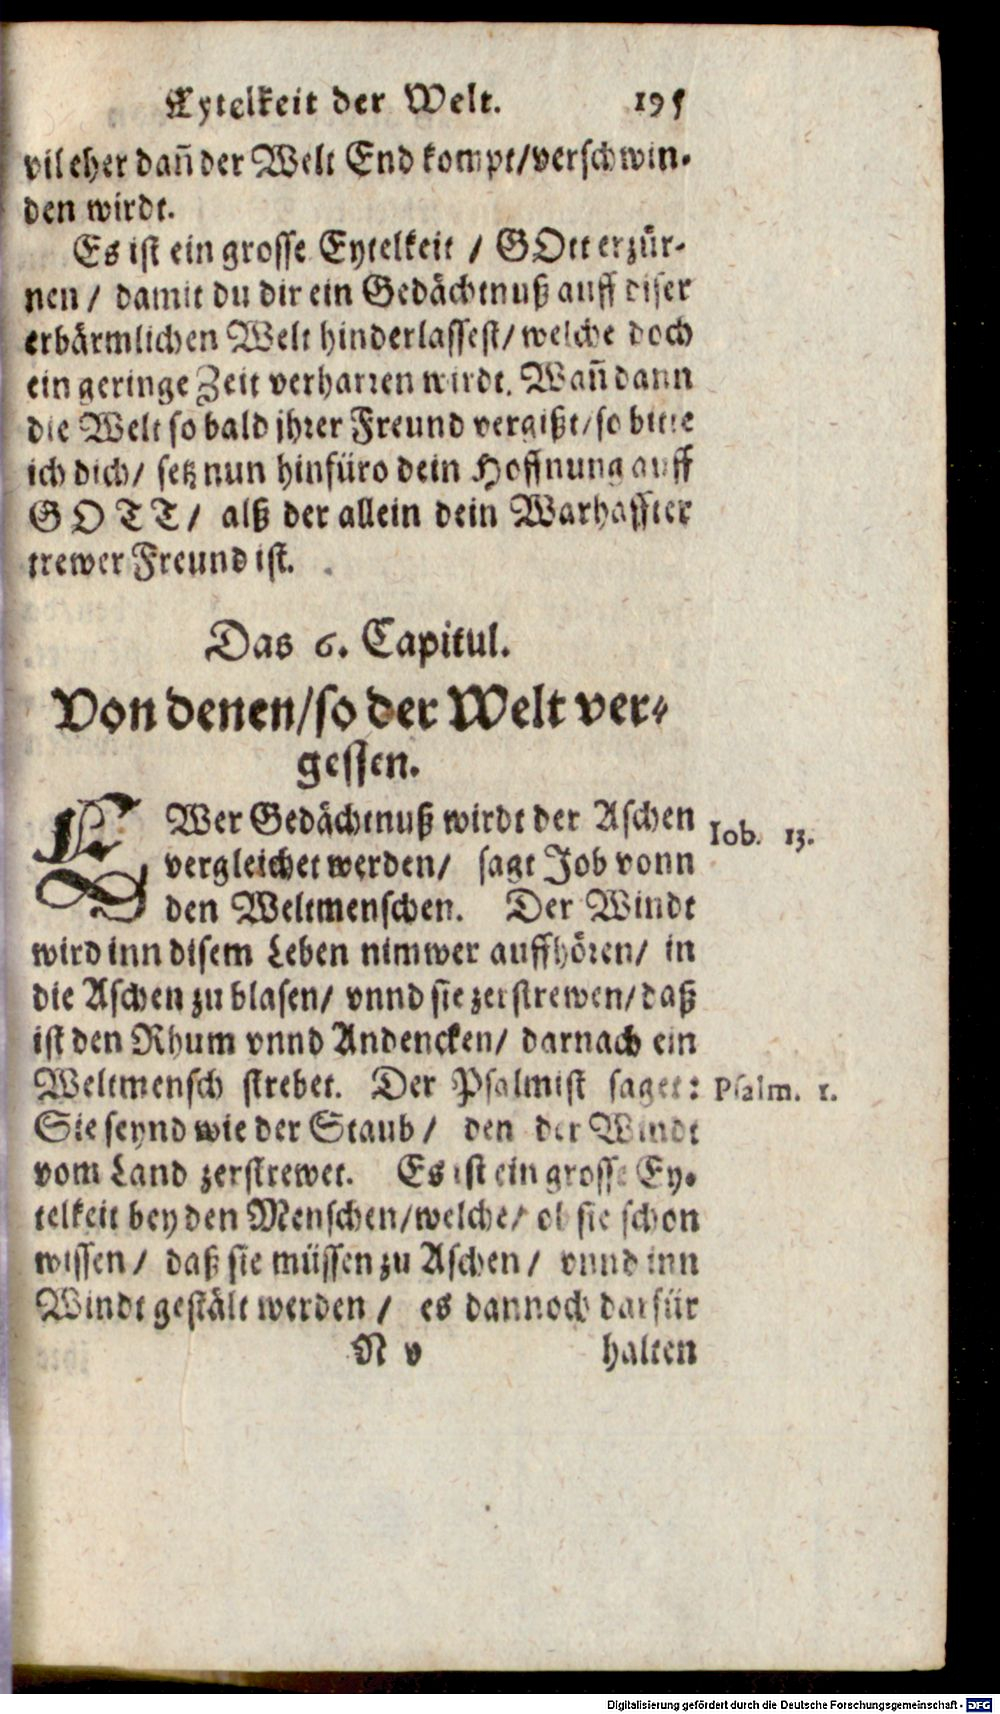 Eytelkeit der Welt. 195
vil eher dañ der Welt End kompt/verschwin-
den wirdt.
Es ist ein grosse Eytelkeit / GOtt erzür-
nen / damit du dir ein Gedächtnuß auff diser
erbärmlichen Welt hinderlassest/ welche doch
ein geringe Zeit verharren wirdt. Wañ dann
die Welt so bald jhrer Freund vergißt/so bitte
ich dich/ setz nun hinfüro dein Hoffnung auff
GOTT/ alß der allein dein Warhaffter
trewer Freund ist.
Das 6. Capitul.
Von denen/so der Welt ver-
gessen.
EWer Gedächtnuß wirdt der Aschen
vergleichet werden/ sagt Job vonn
den Weltmenschen. Der Windt
wird inn disem Leben nimwer auffhören/ in
die Aschen zu blasen/ vnnd sie zerstrewen/daß
ist den Rhum vnnd Andencken/ darnach ein
Weltmensch strebet. Der Psalmist saget:
Sie seynd wie der Staub / den der Windt
vom Land zerstrewet. Es ist ein grosse Ey-
telkeit bey den Menschen/welche/ ob sie schon
wissen / daß sie müssen zu Aschen / vnnd inn
Windt gestält werden / es dannoch darfür
N v halten
Iob. 13.
Psalm. 1.
Digitalisierung gefördert durch die Deutsche Forschungsgemeinschaft - DFG